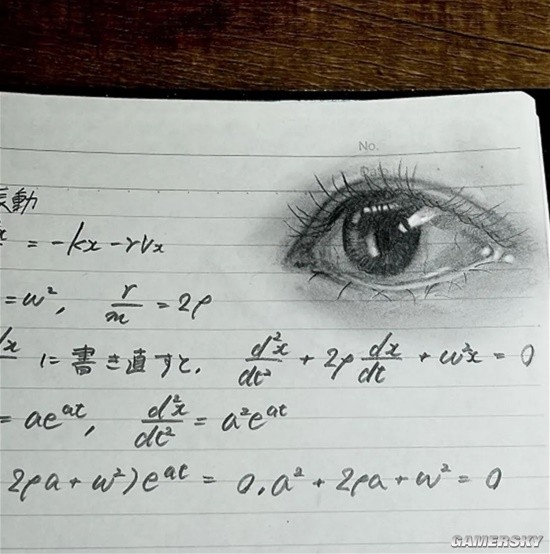 No.
Date
振動
= -kx - rvx
= ω², r/m = 2ρ
dx に書き直すと, d²x/dt² + 2ρ dx/dt + ω²x = 0
= ae^{at}, d²x/dt² = a²e^{at}
2ρa + ω²)e^{at} = 0, a² + 2ρa + ω² = 0
GAMERSKY